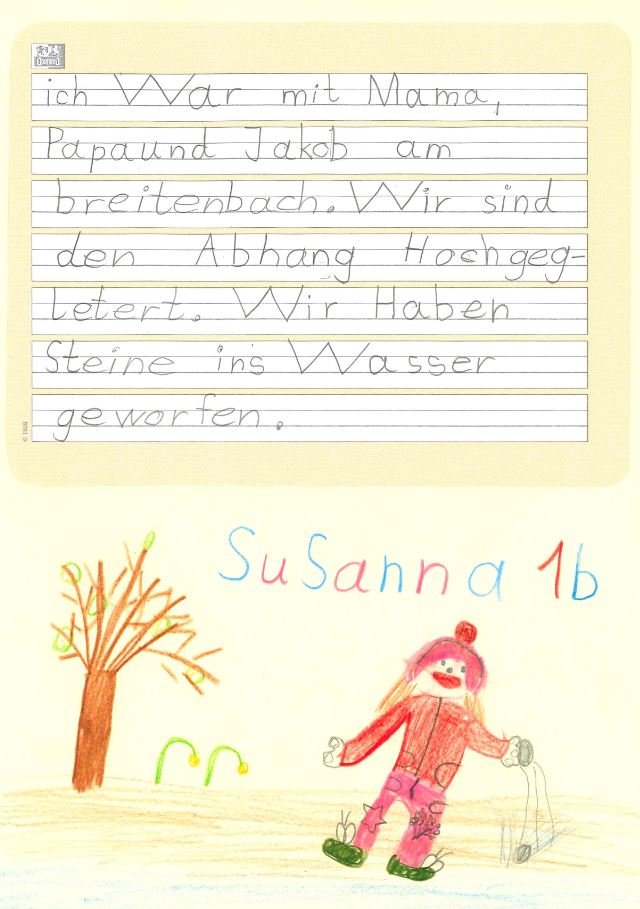 ich War mit Mama,
Papa und Jakob am
breitenbach. Wir sind
den Abhang Hochgeg-
letert. Wir Haben
Steine ins Wasser
geworfen.
SuSanna 1b